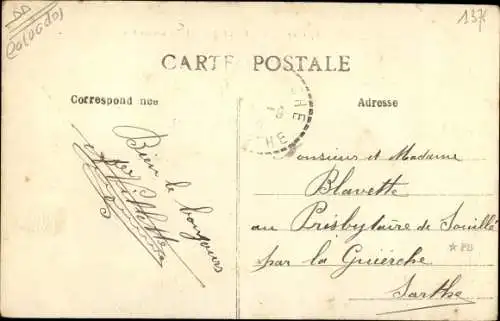 137
CARTE POSTALE
Correspond nce
Adresse
HE
HE
Bien le bonjours
Monsieur et Madame
Blavette
au Presbytaire de Souillé
par la Guiérche
Sarthe